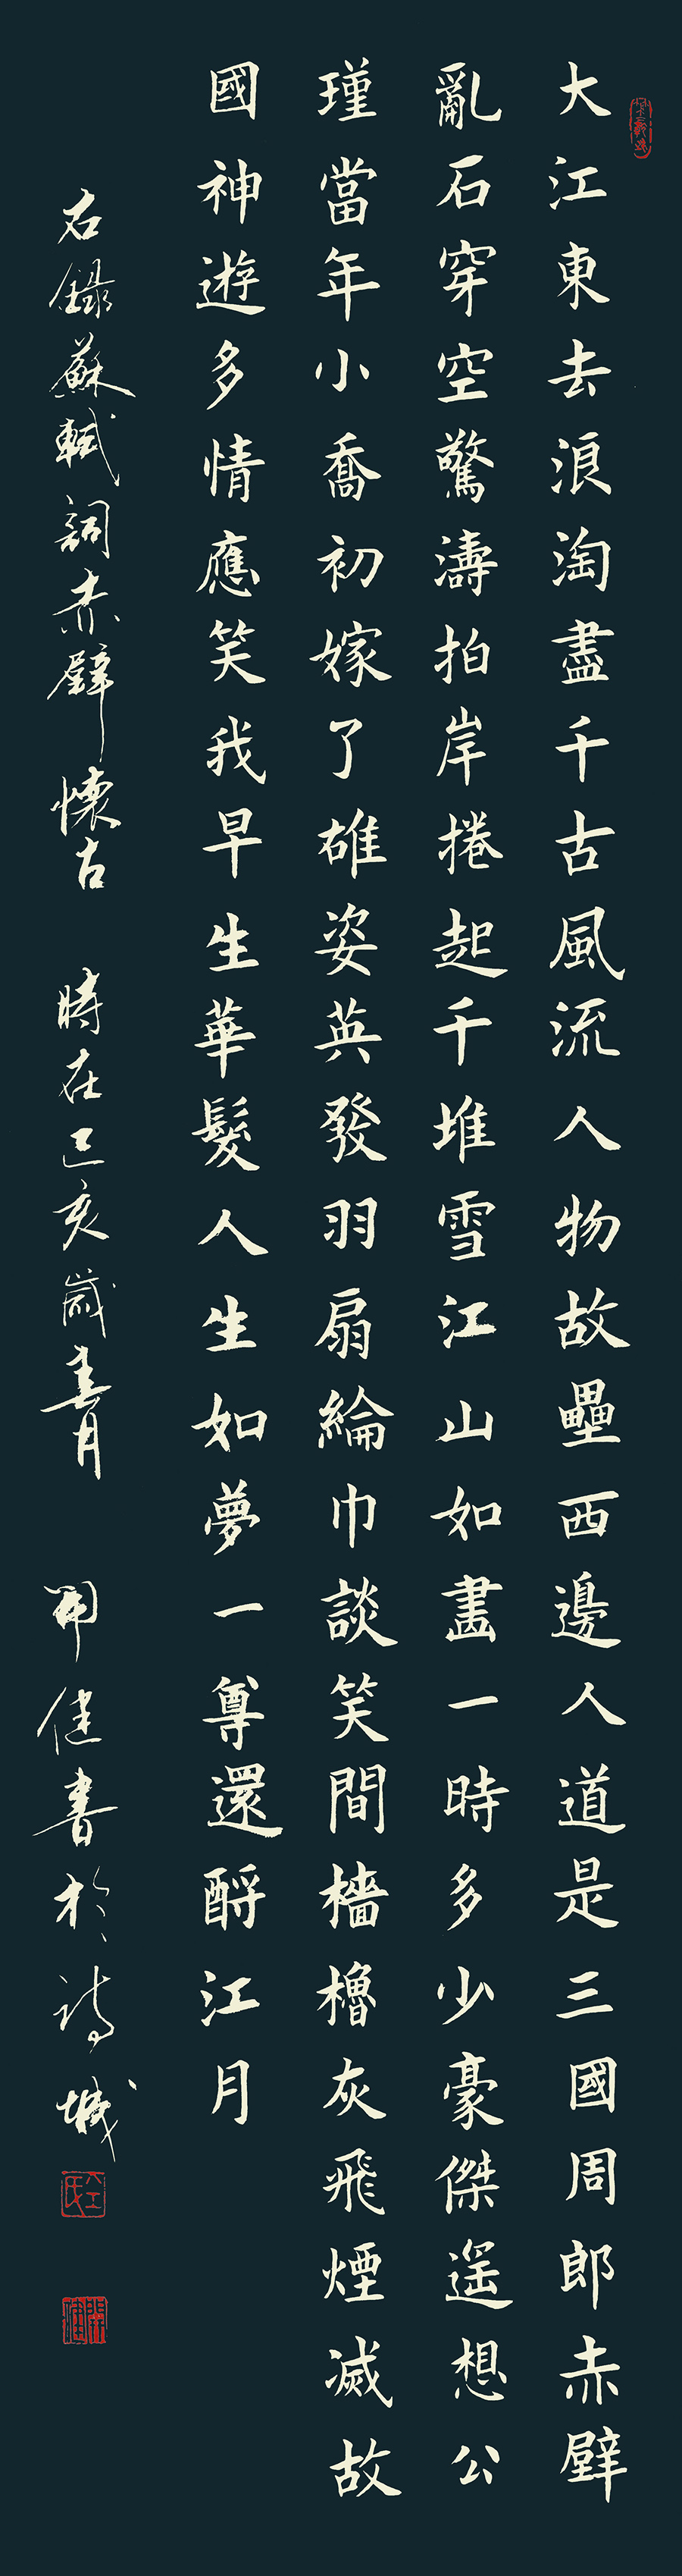 大江東去浪淘盡千古風流人物故壘西邊人道是三國周郎赤壁
亂石穿空驚濤拍岸捲起千堆雪江山如畫一時多少豪傑遙想公
瑾當年小喬初嫁了雄姿英發羽扇綸巾談笑間檣櫓灰飛煙滅故
國神遊多情應笑我早生華髮人生如夢一尊還酹江月
右錄蘇軾詞赤壁懷古 時在己亥歲 開健書於詩城
開健